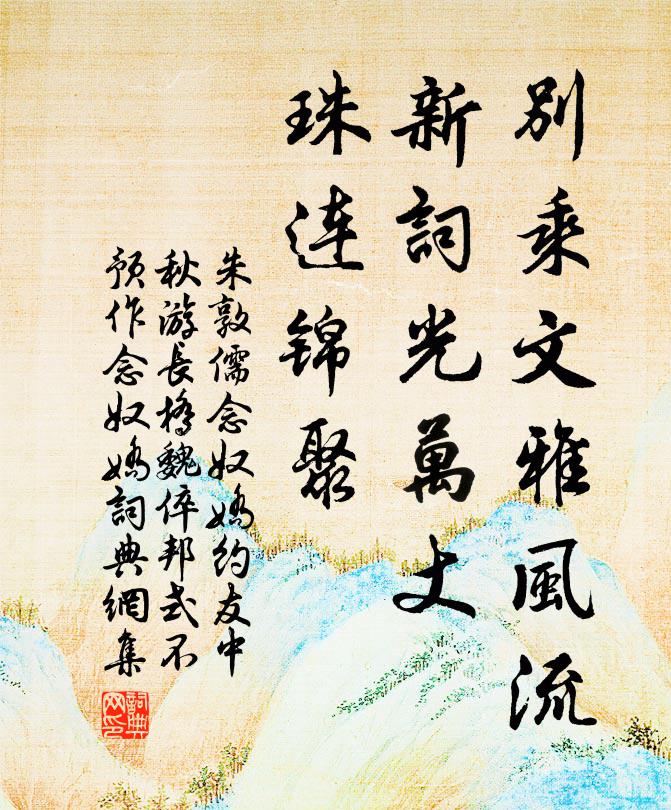 別乘文雅風流
新詞光萬丈
珠连锦聚
朱敦儒念奴嬌约友中
秋游長橋魏倅邦式不
預作念奴嬌詞典網集
詞典
网印